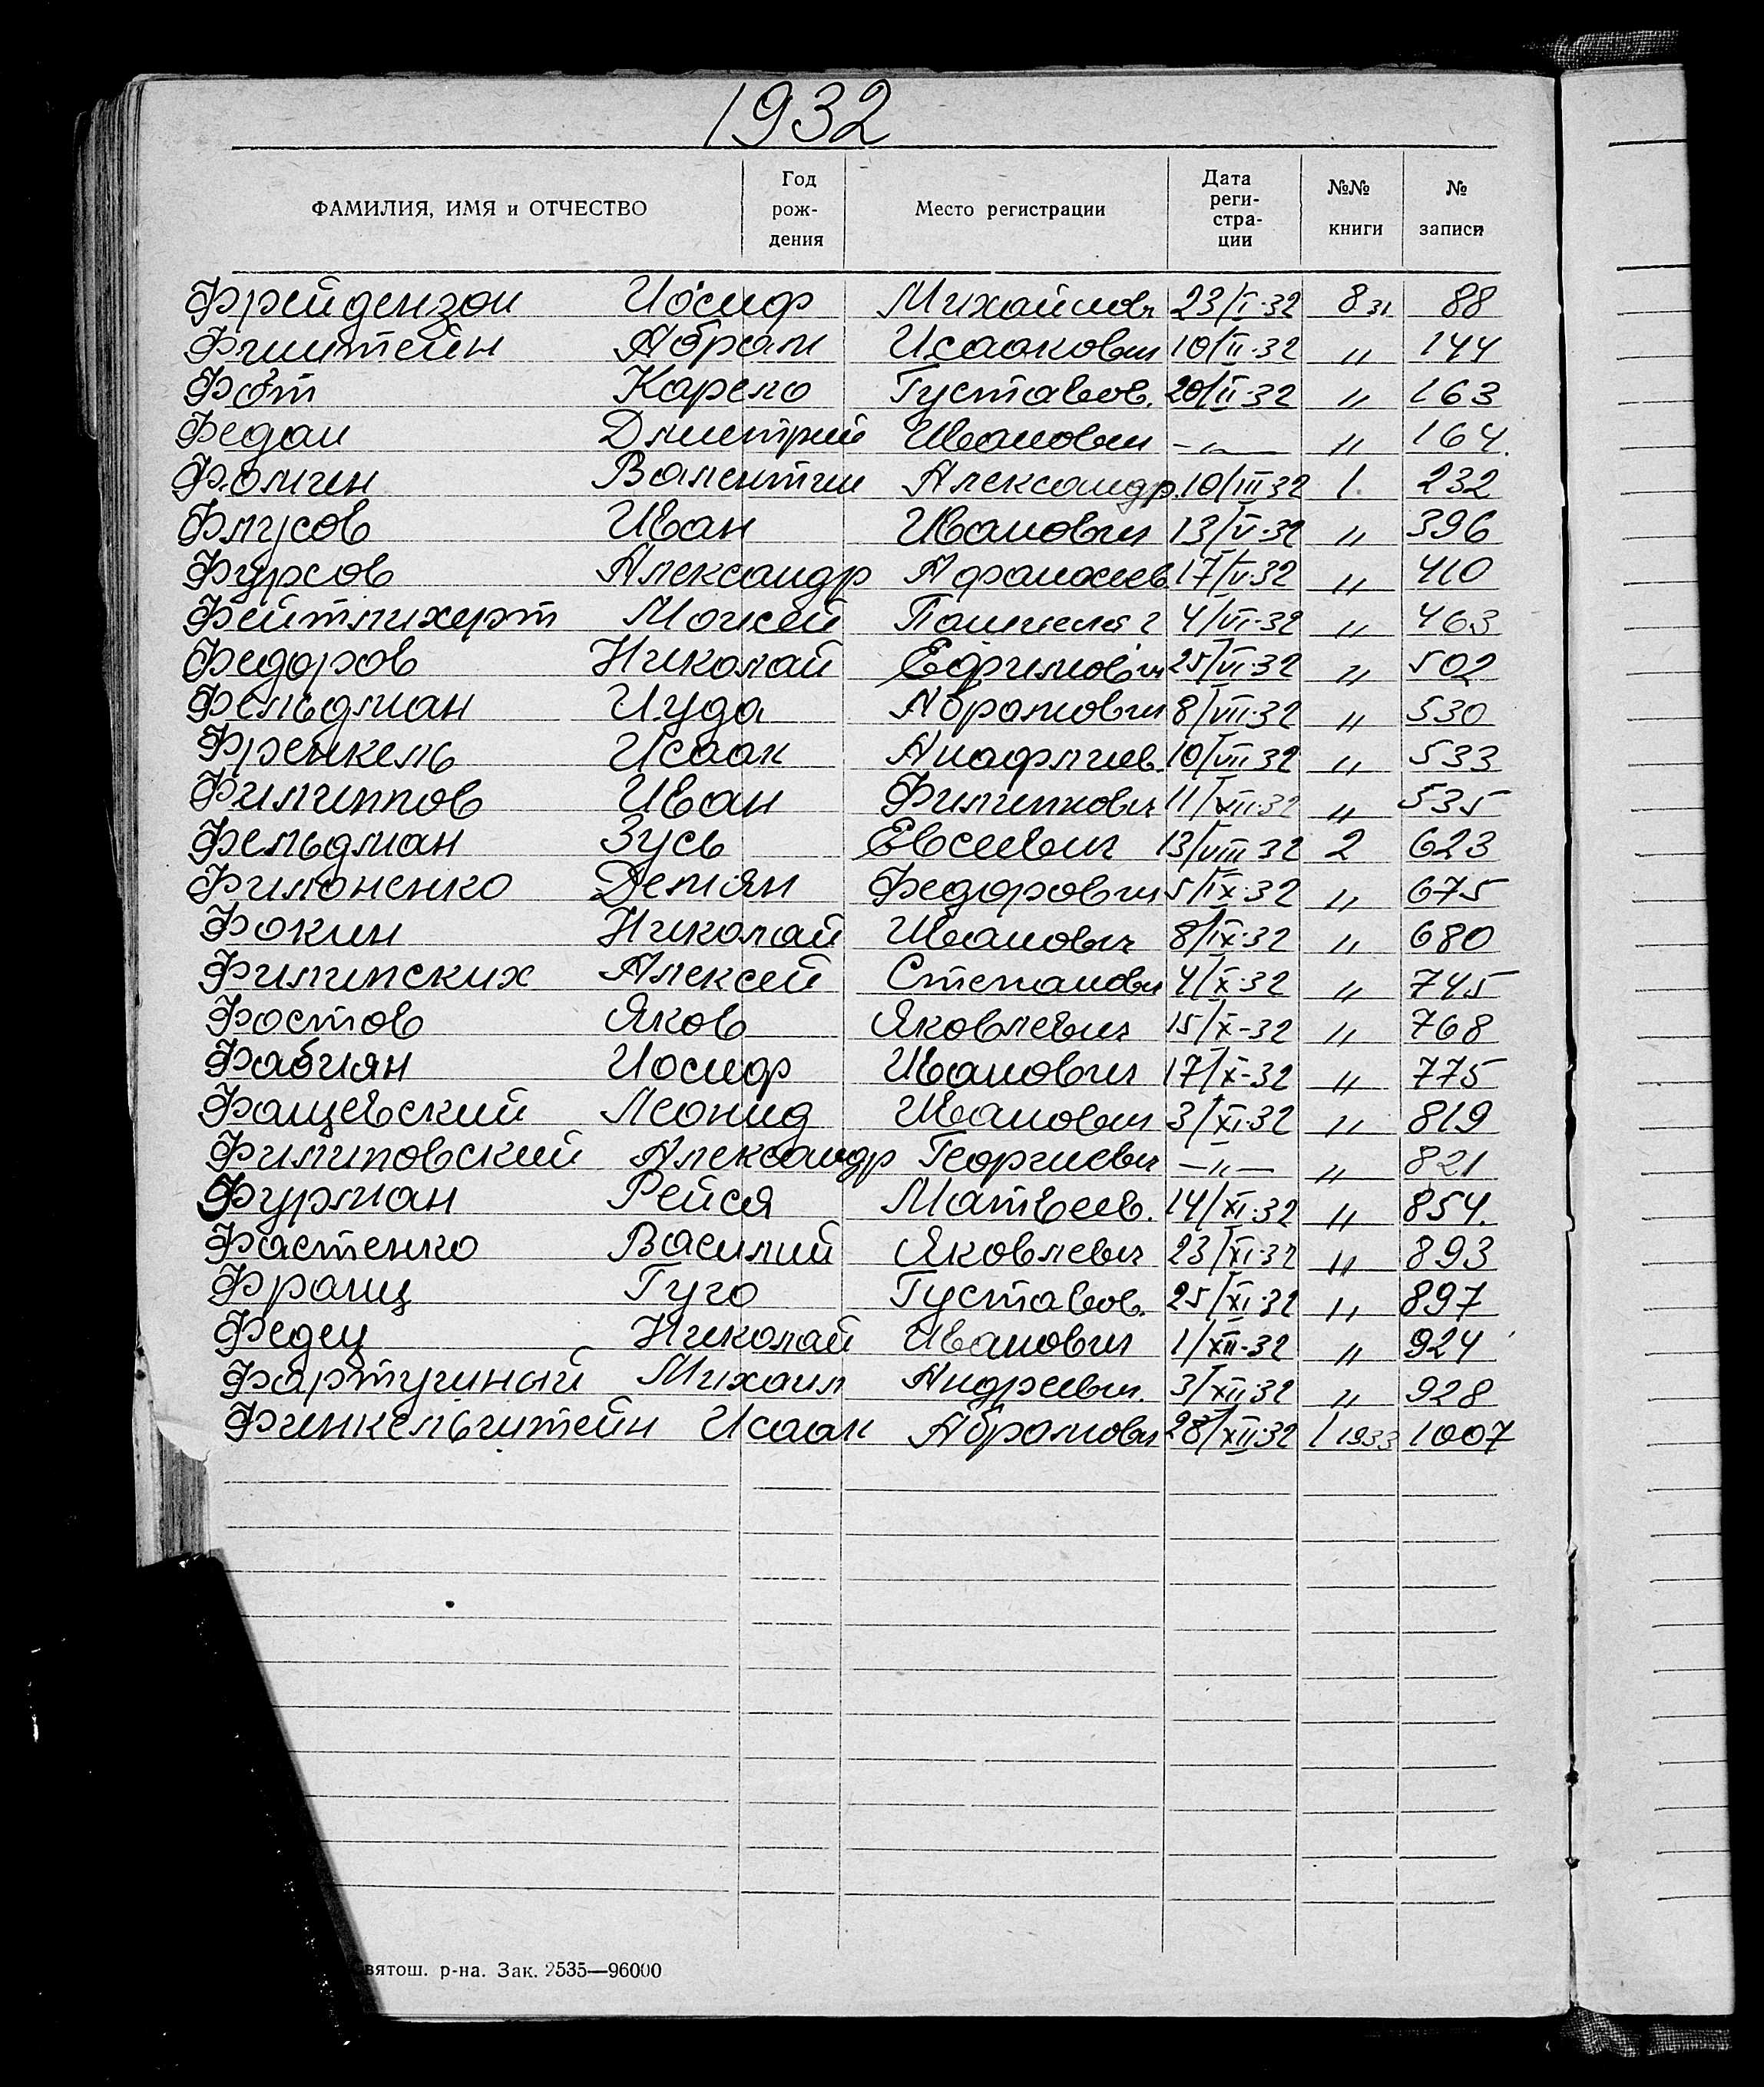 1932
ФАМИЛИЯ, ИМЯ и ОТЧЕСТВО Год рож- дения Место регистрации Дата реги- стра- ции №№ книги № записи
Фрейдензон Иосиф Михайлов. 23/I-32 8 31 88
Абрам Исаакович 10/II-32 " 144
Фот Карело Густавов. 20/II-32 " 163
Федан Дмитрий Иванович -"- " 164.
Фомин Валентин Александр. 10/III 32 1. 232
Флусов Иван Иванович 13/V-32 " 396
Фурсов Александр Афанасиев. 17/V-32 " 410
Фейтлихерт Моисей 4/VI-32 " 463
Федоров Николай Ефимович 25/VI-32 " 502
Фельдман Иуда Абрамович 8/VII-32 " 530
Френкель Исаак 10/VII 32 " 533
Филиппов Иван Филиппович 11/XII-32 " 535
Фельдман Зусь Евсеевич 13/VIII 32 2 623
Филоненко Демян Федорович 5/IX-32 " 675
Фокин Николай Иванович 8/IX-32 " 680
Филипских Алексей Степанович 4/X-32 " 745
Фостов Яков Яковлевич 15/X-32 " 768
Фабиян Иосиф Иванович 17/X-32 " 775
Фащевский Леонид Иванович 3/XI-32 " 819
Филиповский Александр Георгиевич -"- " 821
Фурман Рейся Матвеев. 14/XI-32 " 854.
Фастенко Василий Яковлевич 23/XI-32 " 893
Франц Гуго Густавов. 25/XI-32 " 897
Федец Николай Иванович 1/XII-32 " 924
Фартушный Михаил Андреевич. 3/XII-32 " 928
Финкельштейн Исаак Абрамович 28/XII-32 1 1933 1007
вятош. р-на. Зак. 2535—96000